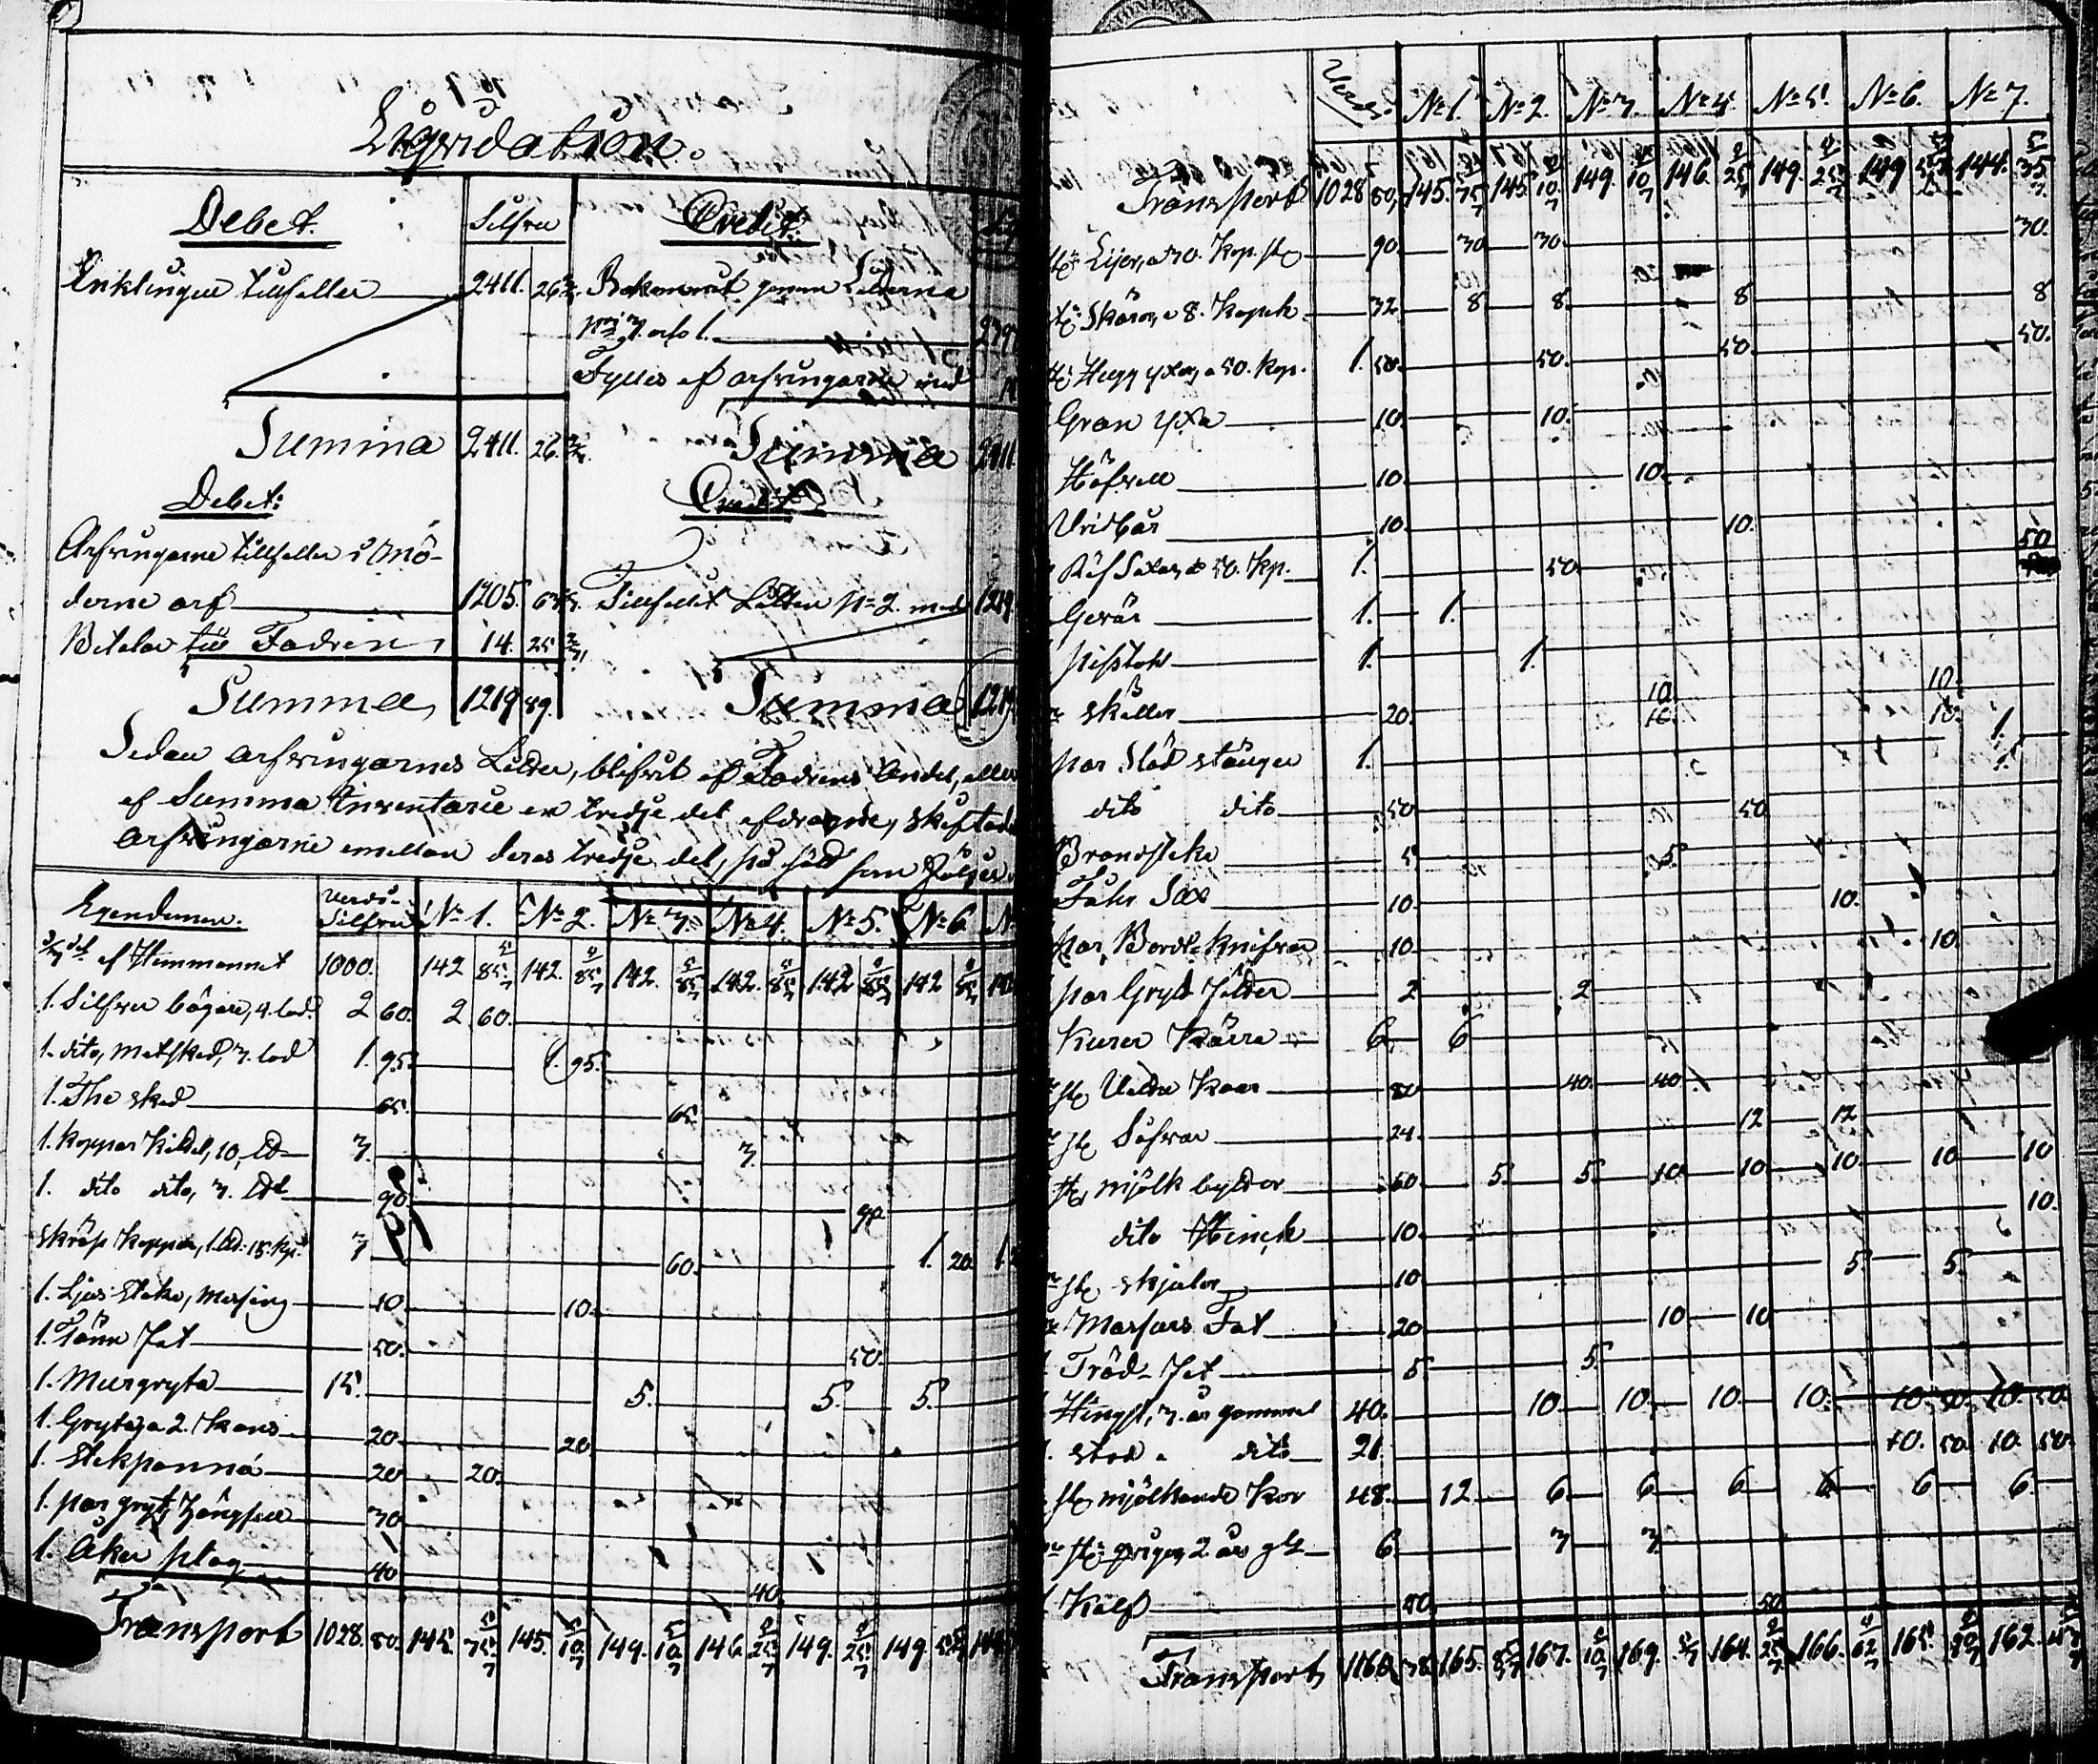 Liqvidation.
Debet. Silfver Credit.
Enklingen tillfaller 2411. 26 2/7. Bekommit genom Lotterna
N:o 3. och 1. 
Fylles af arfvingarne med
Summa 2411. 26. 2/7. Summa 2411
Debet: Credit
Arfvingarne tillfaller i Mö-
derne arf 1205. 63 Tillfallit Lotten N:o 2. med 1219.
Betalar till Fadren 14. 25
Summa 1219 89. Summa 1219
Sedan arfvingarnes Lotter, blifvit af Fadrens andel, eller
af Summa Inventarie en tredje del afdragne, skiftade
arfvingarne emellan deras tredje del, på sätt som följer
Egendomen. Verde Silfver N:o 1. N:o 2. N:o 3. N:o 4. N:o 5. N:o 6.
del af Hemmannet 1000. 142 85 5/7 142. 85 5/7 142. 85 5/7 142. 85 5/7 142 85 5/7 142 85 5/7
1. Silfver bägare, 4. lod. 2 60. 2 60.
1. dito, Matsked, 3. lod 1. 95. 1. 95.
1. The sked 65. 65.
1. koppar Kittel, 10, Ld 3. 3.
1. dito dito, 3. Ld 90. 90
Skräp koppar, 1. Ld. 15. kp. 3 60. 1. 20 1.
1. Ljus Stake, Messing 10. 10.
1. Tenn Fat 50. 50.
1. Murgryta 15. 5. 5. 5.
1. Gryta, a 2. Kans 20 20
1. Stekpanna 20 20.
1. par gryt 30
1. Åker plog 40 40
Transport 1028. 80. 145. 75 5/7 145. 10 5/7 149. 10 5/7 146. 25 5/7 149. 25 5/7 149.
Verde N:o 1. N:o 2. N:o 3. N:o 4. N:o 5. N:o 6. N:o 7.
Transport 1028 80, 145. 75 5/7 145 10 5/7 149. 10 5/7 146. 25 5/7 149. 25 5/7 149 144. 35 5/7
st: Lijer, a 30. Kop. st. 90 30 30 30.
st: Skäror, a 8. Kopek 32 8 8 8 8
st: Hugg yxor, a 50. kop. 1. 50. 50. 50. 50.
Gran yxa 10. 10.
Höfvell 10. 10.
Vridbår 10. 10.
Räf Saxar, a 50. Kp. 1. 50 50
Gevär 1. 1.
Pistohl 1. 1.
Skällor 20. 10 10 10 10
par Släd stänger 1. 1.
dito dito 50 50
Brandstake 5 5
Fåhr Sax 10 10.
par Bords knifvar 10 10
par Gryt 2 2
Kärra 6 6
st. Kaar 80 40 40
st. Såfvar 24. 12 12
st. mjölk byttor 60 5. 5. 10 10 10 10 10
dito Stinck 10 10.
st. skjulor 10 5 5
Fat 20 10 10
Träd Fat 5 5
Hingst, 3. år gammal 40. 10 10. 10. 10. 10. 50. 10. 50
Stod dito 21. 10. 50 10. 50
st. mjölkande kor 48. 12 6 6 6 6 6 6
st. qvigor, 2. års 6. 3 3
Kalf 50 50
Transport 1160 38 165. 85 5/7 167. 10 5/7 169. 5/7 164. 25 5/7 166. 62 165. 90 162.